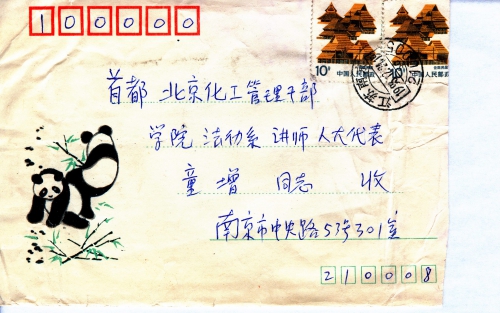 100000
10分 中国人民邮政
10分 中国人民邮政
首都 北京化工管理干部
学院 法劝系 讲师 人大代表
童增 同志 收
南京市中央路53号301室
210008